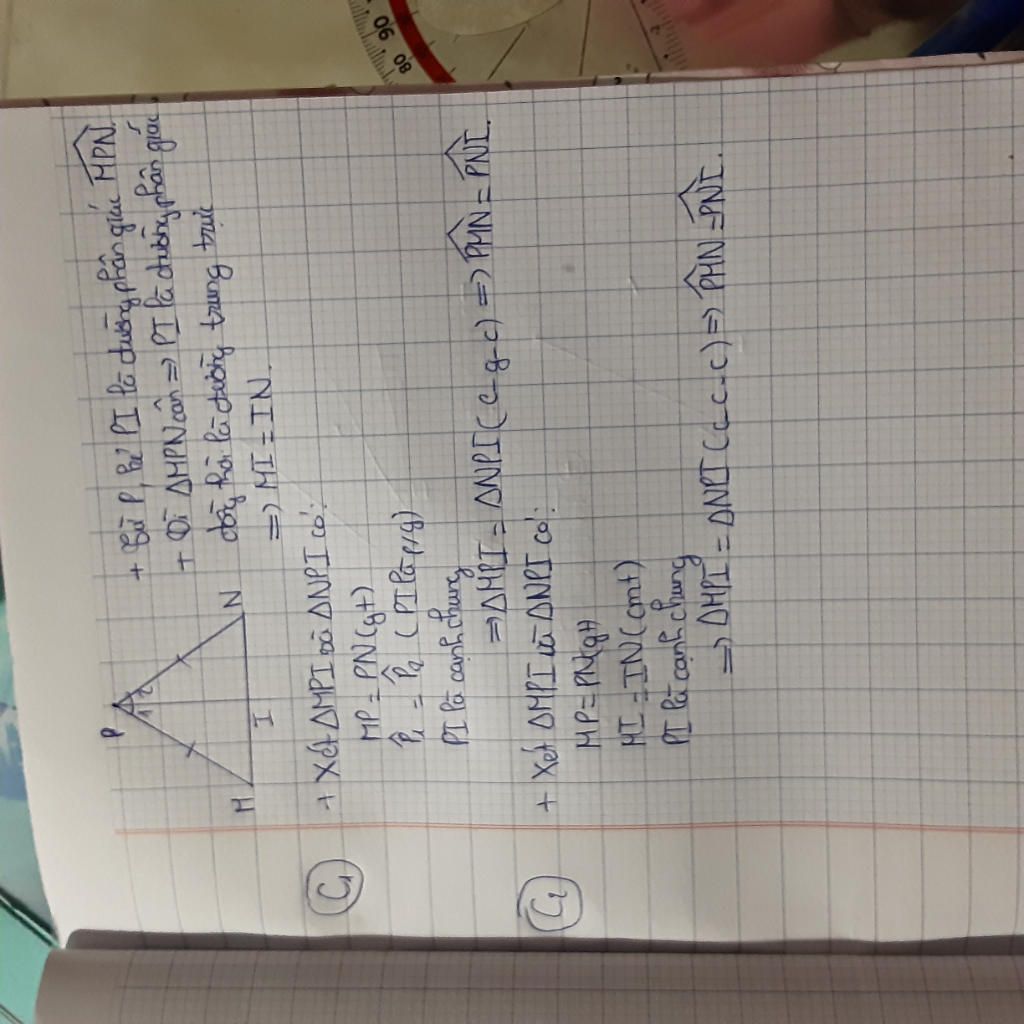 + Từ P, kẻ PI là đường phân giác M̂PN.
+ Vì ΔMPN cân => PI là đường phân giác
đồng thời là đường trung trực
=> MI = IN.
P
1 2
M I N
C1
+ Xét ΔMPI và ΔNPI có:
MP = PN (gt)
P̂1 = P̂2 (PI là p/g)
PI là cạnh chung
=> ΔMPI = ΔNPI (c-g-c) => P̂MN = P̂NI.
C2
+ Xét ΔMPI và ΔNPI có:
MP = PN (gt)
MI = IN (cmt)
PI là cạnh chung
=> ΔMPI = ΔNPI (c-c-c) => P̂MN = P̂NI.
80
90